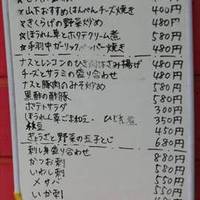 ☆山下おすすめはんぺんチーズ焼き 480円
☆きくらげの野菜炒め 480円
☆ほうれん草とポテクリーム煮 580円
☆手羽中ガーリックペッパー焼き 480円
ナスとレンコンのひき肉はさみ揚げ 480円
チーズとサラミの盛り合わせ 580円
ナスと豚肉のみそ炒め 580円
黒酢の酢豚 580円
ポテトサラダ 300円
ほうれん草ごまわえ 350円
枝豆 350円
ぎょうざと野菜の玉子とじ 680円
刺し身盛り合わせ 880円
かつお刺し 550円
いわし刺し 550円
メサバ 550円
いか刺し 450円